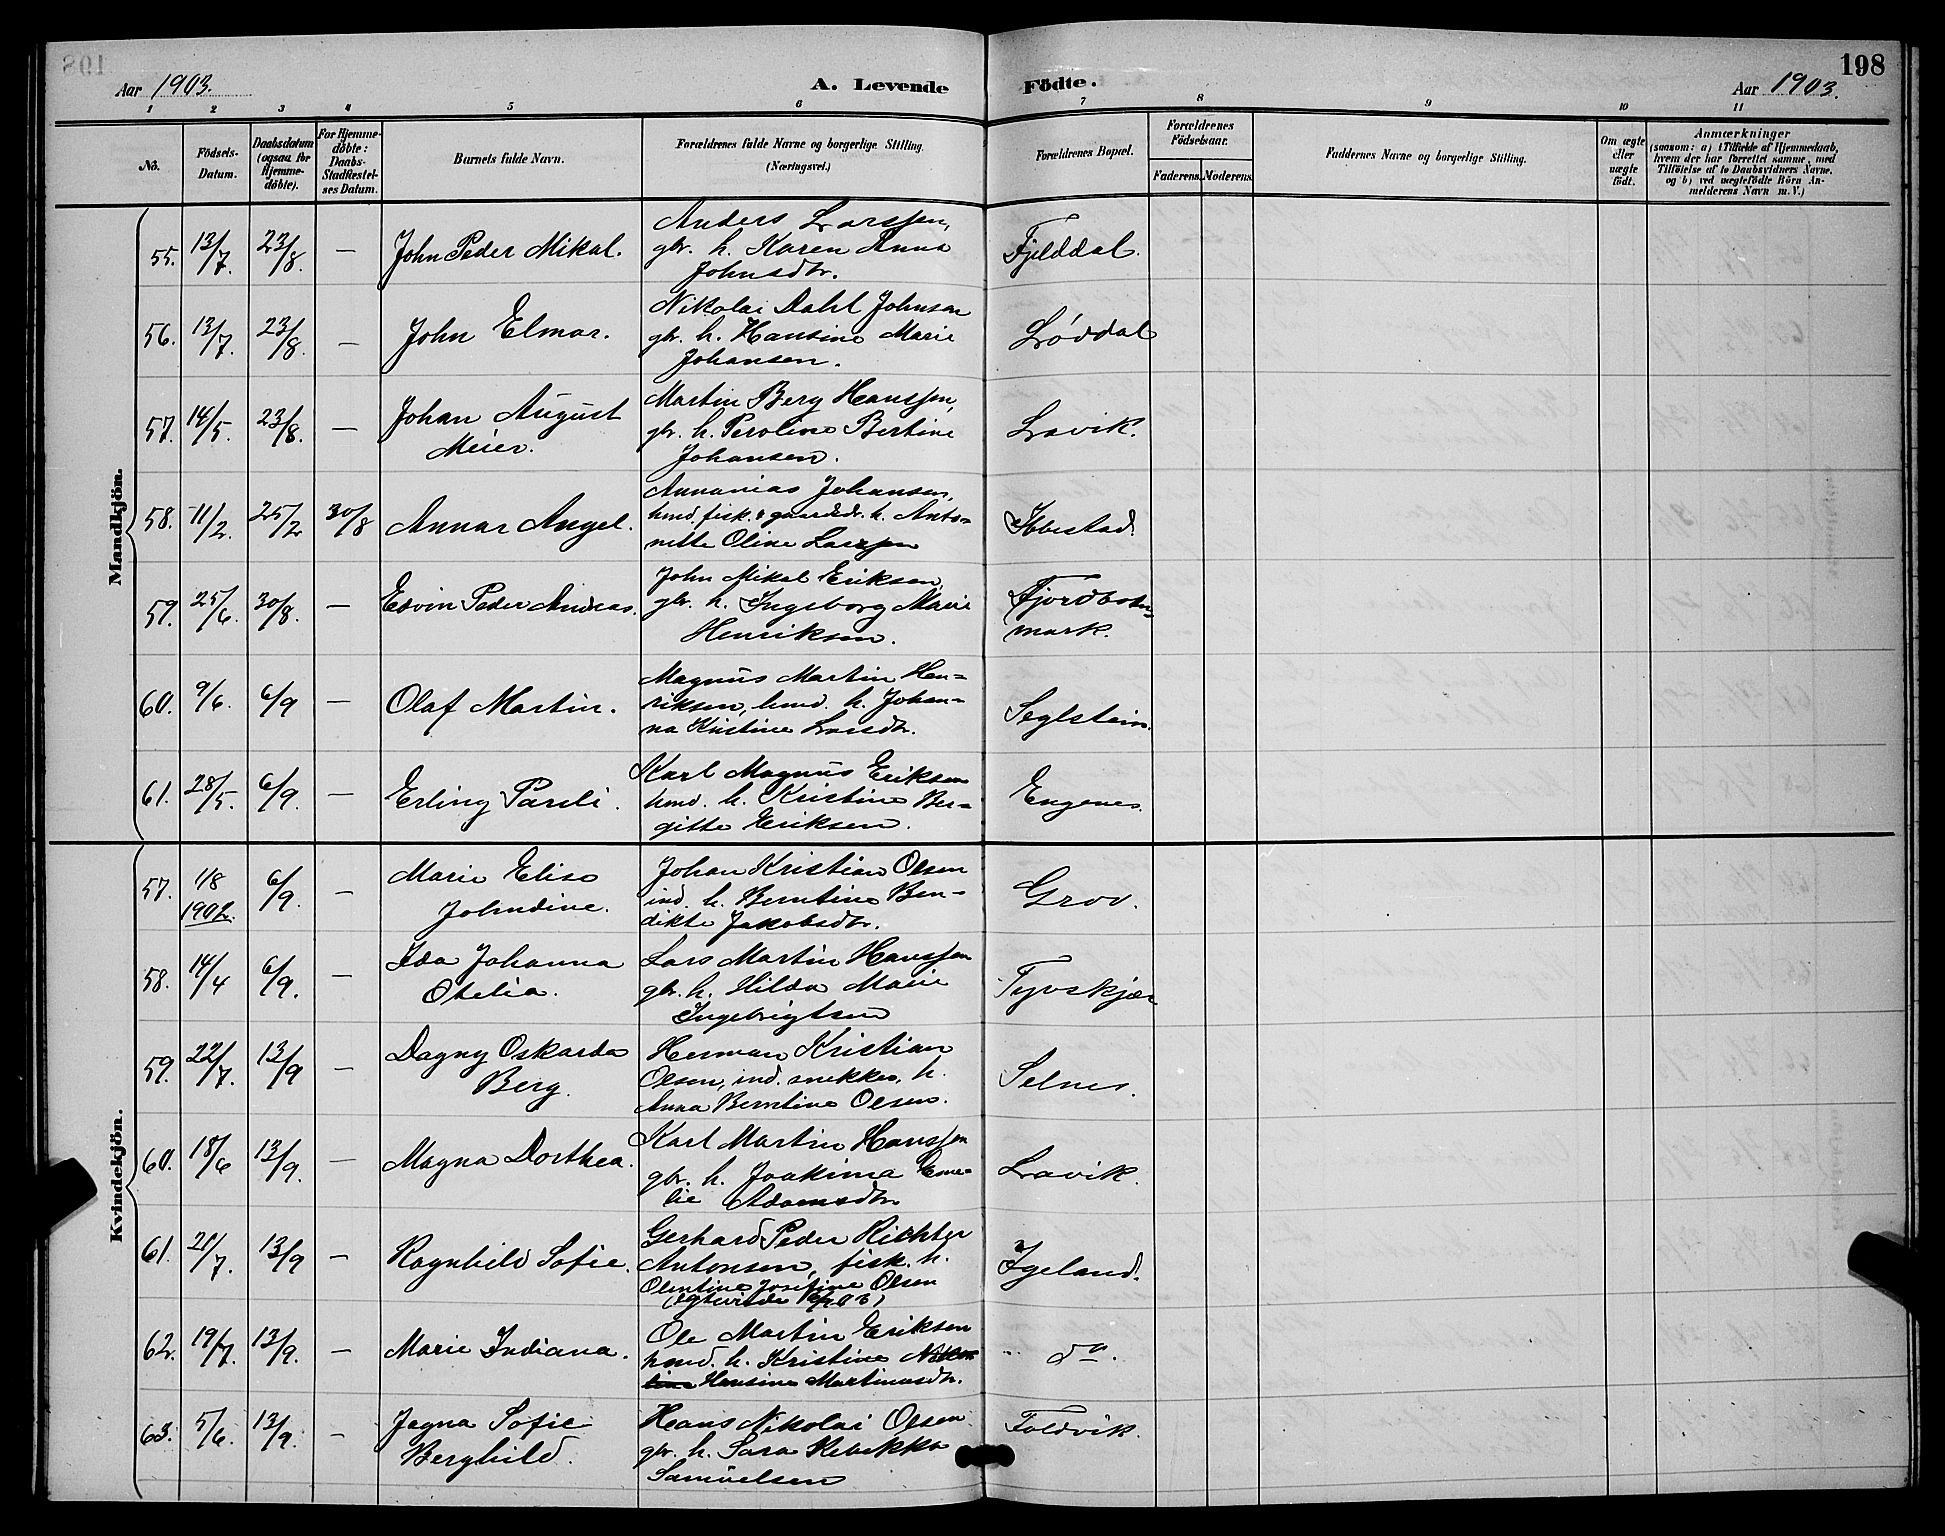 198
Aar 1903.
A. Levende Födte.
Aar 1903.
1 2 3 4 5 6 7 8 9 10 11
No.
Födsels-
Datum.
Daabsdatum
(ogsaa for
Hjemme-
döbte).
For Hjemme-
döbte:
Daabs-
Stadfæstel-
ses Datum.
Barnets fulde Navn.
Forældrenes fulde Navne og borgerlige Stilling.
(Næringsvei.)
Forældrenes Bopæl.
Forældrenes
Födselsaar.
Faderens. Moderens.
Faddernes Navne og borgerlige Stilling.
Om ægte
eller
uægte
født.
Anmærkninger
(saasom: a) i Tilfælde af Hjemmedaab,
hvem der har forrettet samme, med
Tilföielse af to Daabsvidners Navne.
og b) ved uægtefödte Börn An-
melderens Navn m. V.)
Mandkjön.
55. 13/7. 23/8. — John Peder Mikal.
Anders Larssen,
gbr. h. Karen Anna
Johnsdtr.
Fjelddal.
56. 13/7. 23/8. — John Elmar.
Nikolai Dahl Johnsen
gbr. h. Hansine Marie
Johansen.
Løddal
57. 14/5. 23/8. — Johan August
Meier.
Martin Berg Hanssen,
gbr. h. Peroline Bertine
Johansen.
Lavik.
58. 11/2. 25/2 30/8 Annar Angel.
Annanias Johansen,
hmd. fisk. & gaardbr. h. Anto-
nette Oline Larssen
Ibbestad.
59. 25/6. 30/8. — Edvin Peder Andreas.
John Mikal Eriksen
gbr. h. Ingeborg Marie
Henriksen.
Fjordbotn-
mark.
60. 9/6. 6/9 — Olaf Martin.
Magnus Martin Hen-
riksen, hmd. h. Johan-
na Kristine Larsdtr.
Seglstein.
61. 28/5. 6/9. — Erling Pareli.
Karl Magnus Eriksen
hmd. h. Kristine Ber-
gitte Eriksen.
Engenes.
Kvindekjön.
57. 1/8
1902. 6/9. — Marie Elise
Johndine.
Johan Kristian Olsen
ind. h. Berntine Ben-
dikte Jakobsdtr.
Grov.
58. 14/4 6/9. — Ida Johanna
Otelia.
Lars Martin Hanssen
gbr. h. Hilda Marie
Ingebrigtsen
Tyvskjær
59. 22/7. 13/9 — Dagny Oskarda
Berg.
Herman Kristian
Olsen, ind. snekker, h.
Anna Berntine Olsen.
Selnes.
60. 18/6 13/9. — Magna Dorthea.
Karl Martin Hanssen
gbr. h. Joakima Eme-
lie Adamsdtr.
Lavik.
61. 21/7. 13/9 — Ragnhild Sofie.
Gerhard Peder Richter
Antonsen, fisk. h.
Olentine Josefine Olsen
Igeland.
62. 19/7. 13/9. — Marie Indiana.
Ole Martin Eriksen
hmd. h. Kristine
Hansine Martinusdtr.
do.
63. 5/6. 13/9. — Jagna Sofie
Berghild.
Hans Nikolai Olsen
gbr. h. Sara Rebekka
Samuelsen
Foldvik.